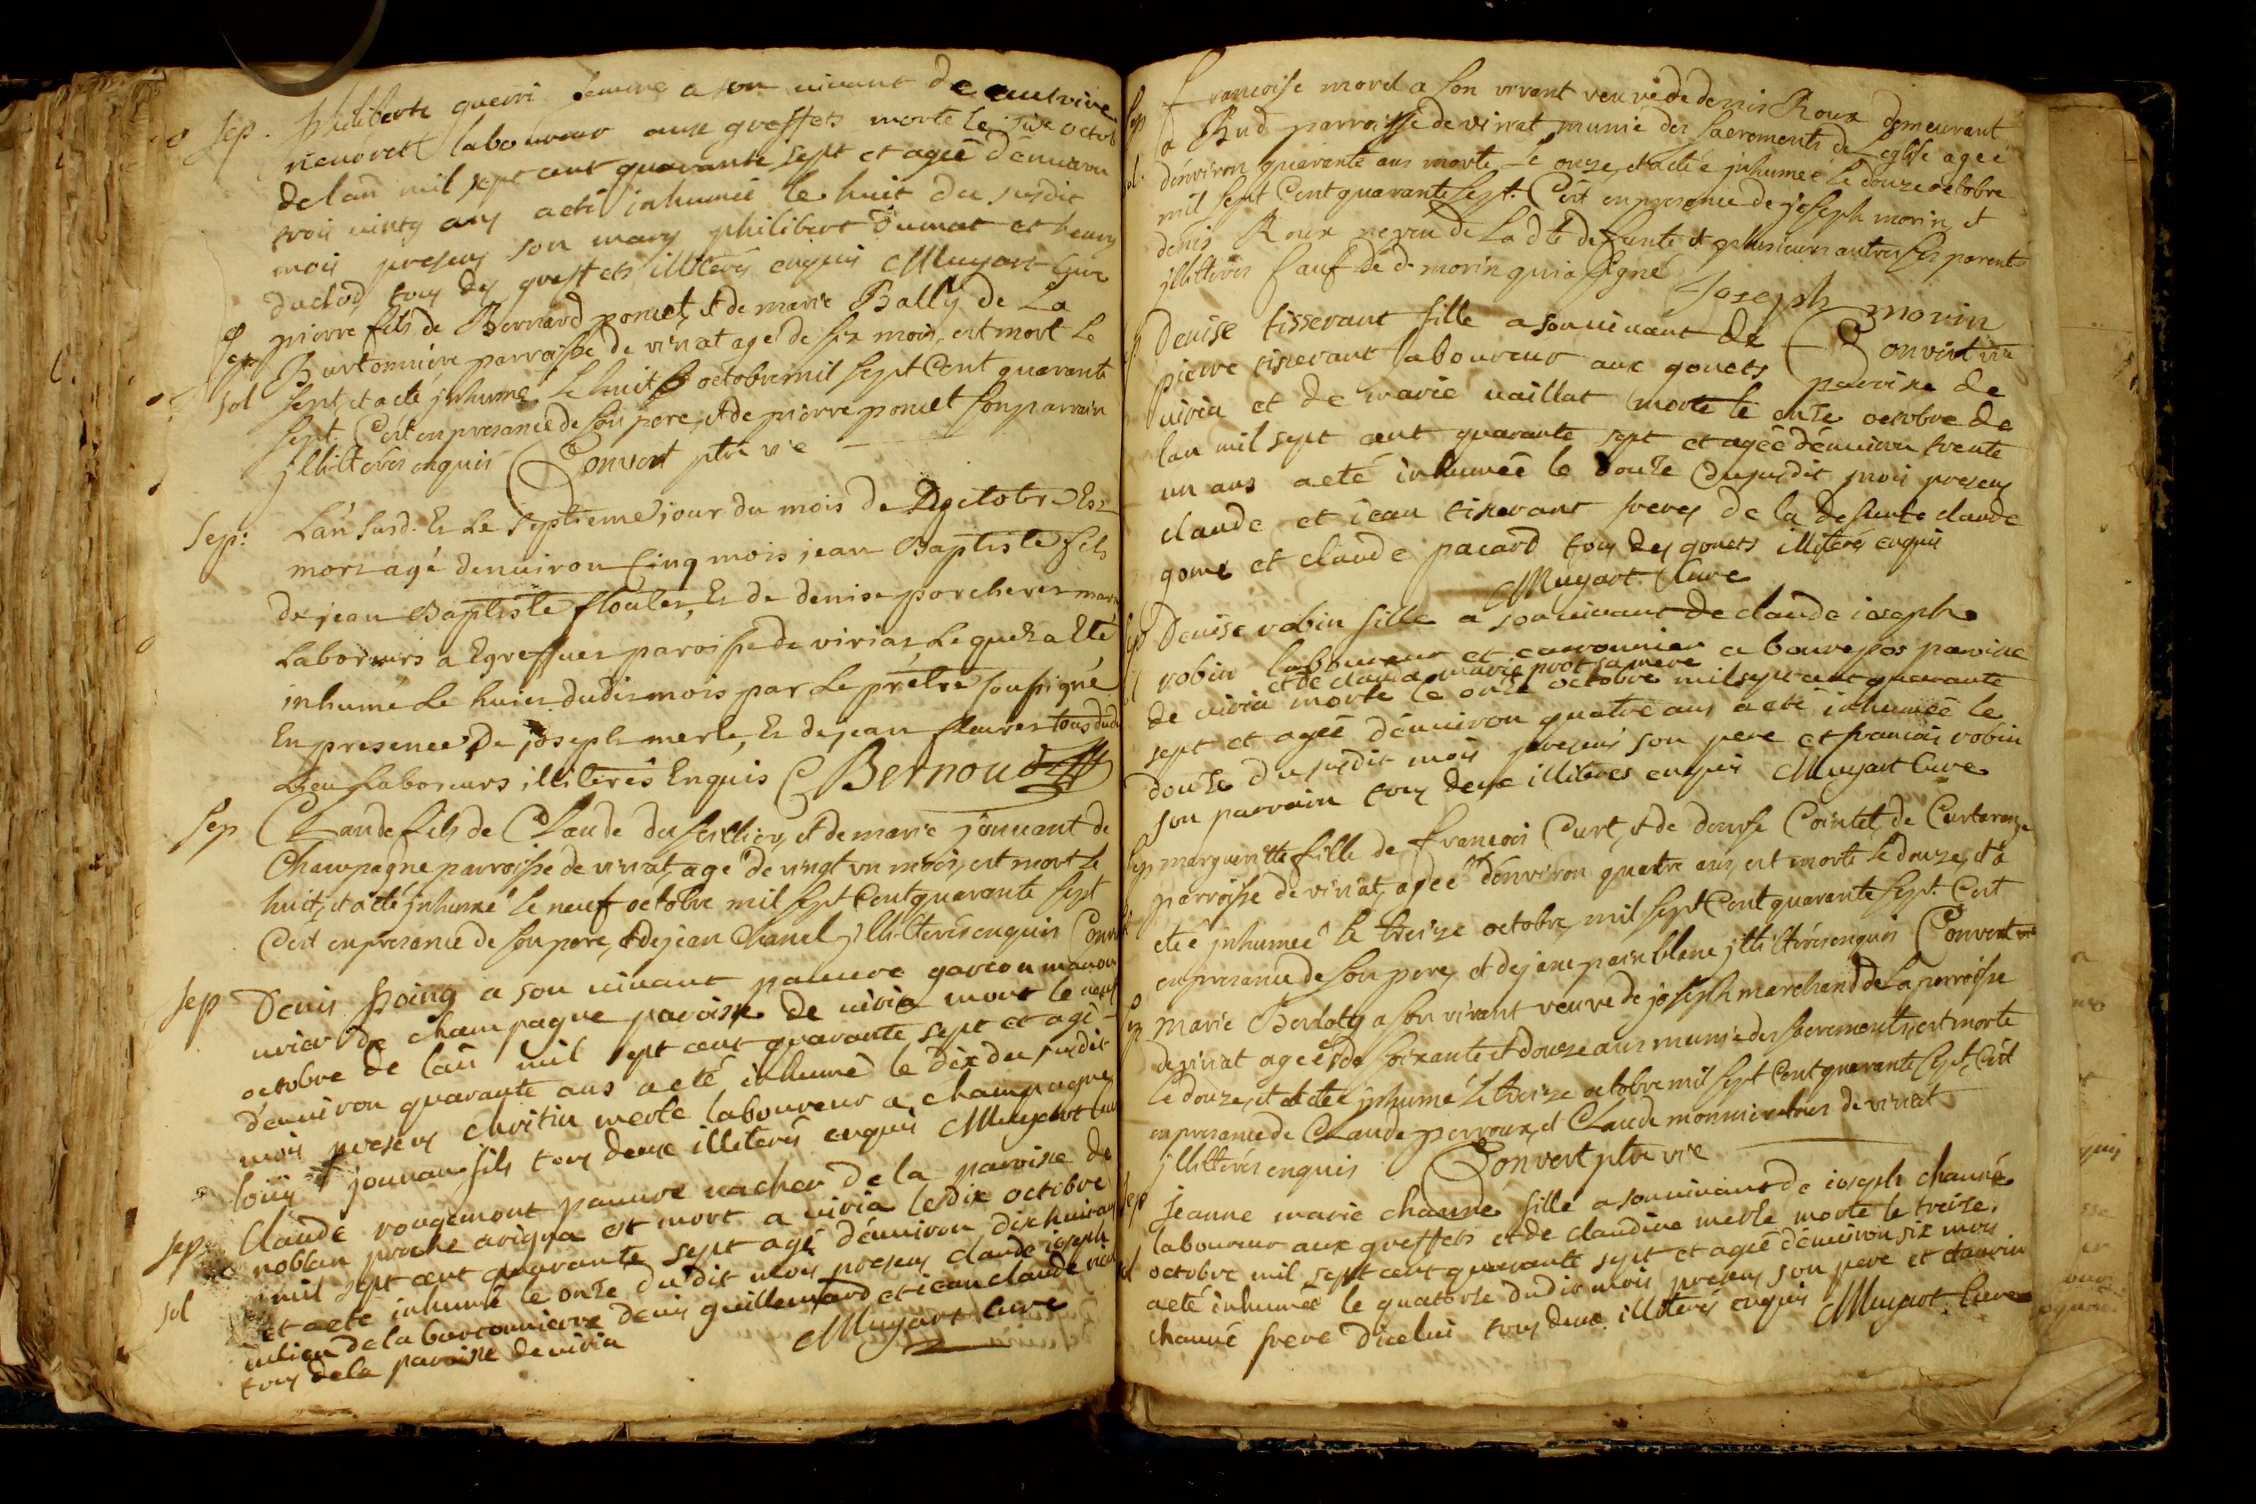 Sep. philiberte guerri femme a son vivant de
renoret laboureur aux greffets morte le six octob
de lan mil sept cent quarante sept et agée d'environ
trois vints ans a eté inhumée le huit du susdit
mois presens son mary philibert Dumat et henry
duchod tous des greffets illiterés enquis Muyart Curé
Sep pierre fils de Bernard poncet, et de marie Bally de La
Bartonniere parroisse de viriat agé de six mois, est mort Le
sol sept, et a eté jnhumé Le huit octobre mil sept Cent quarante
sept. C'est en presance de son pere, et de pierre poncet son parrain
jllitterés enquis Convert ptre vre
Sep: L'an susd. Et Le septieme jour du mois de octobre Est
mort agé denviron Cinq mois jean Baptiste fils
de jean Baptiste Et de denise porcheres
Laboreurs a Egreffues paroisse de viriat, Le quel a Eté
inhumé Le huit dudit mois par Le prêtre soussigné
En presence De joseph merle, Et de jean tous dudit
Lieu Laboreurs illiterés Enquis Bernoud
Sep CLaude fils de CLaude du et de marie jouvant de
Champagne parroisse de viriat, agé de vingt un mois, est mort le
huit, et a eté jnhumé le neuf octobre mil sept Cent quarante sept
C'est en presance de son pere, et de jean Chanel jllitterés enquis Conv
Sep Denis a son vivant pauvre garcon manou
uvrier de champagne paroisse de viria mort le neuf
octobre de lan mil sept cent quarante sept et agé
d'environ quarante ans a eté inhumé le dix du susdit
mois presens merle laboureur a champagne
loüis jouvan fils tous deux illiterés enquis Muyart Curé
Sep Claude rougemont pauvre vacher de la paroisse de
noblan proche est mort a viria le dix octobre
mil sept cent quarante sept agé d'environ dix huit ans
sol et a eté inhumé le onze dudit mois presens claude joseph
de la bartonniere denis guillemard et jean claude
tous de la paroisse de viria Muyart Curé
Sep francoise morel a son vivant veuve de denis Roux demeurant
a Bud parroisse de viriat, munie des sacrements de L'eglise agée
sol d'environ quarante ans morte le onze, et a eté jnhumée le douze octobre
mil sept Cent quarante sept. C'est en presence de joseph morin, et
denis Roux neveu de La dte defunte et plusieurs autres ses parents
jllitterés sauf le d. morin qui a signé Joseph morin
Convert vre
Denise tisserant fille a son vivant de
pierre tisserant laboureur aux gonets paroisse de
viria et de marie vaillat morte le onze octobre de
lan mil sept cent quarante sept et agée d'environ trente
un ans a eté inhumée le douze du susdit mois presens
claude et jean tisserant freres de la defunte claude
gome et claude pacard tous des gonets illiterés enquis
Muyart Curé
Sep Denise robin fille a son vivant de claude joseph
robin laboureur et a bourepos paroisse
et de claudi marie prost sa mere
de viria morte le onze octobre mil sept cent quarante
sept et agée d'environ quatre ans a eté inhumée le
douze du susdit mois presens son pere et francois robin
son parrain tous deux illiterés enquis Muyart Curé
Sep marguerite fille de francois Curt, et de denise Cointet, de
parroisse de viriat, agée d'environ quatre ans, est morte le douze, et a
eté jnhumée le treize octobre, mil sept Cent quarante sept. C'est
en presance de son pere, et de jllitterés enquis Convert vre
marie a son vivant veuve de joseph marchand de La parroisse
de viriat agée de soixante et douze ans munie des sacrements, est morte
le douze, et a eté jnhumé le treize octobre mil sept Cent quarante sept, C'est
en presance de CLaude perroux, et CLaude monnier tous de viriat
jllitterés enquis Convert ptre vre
Sep jeanne marie channé fille a son vivant de joseph channé
laboureur aux greffets et de claudine merle morte le treize
sol octobre mil sept cent quarante sept et agée d'environ six mois
a eté inhumée le quatorze dudit mois presens son pere et
channé frere d'icelui tous deux illiterés enquis Muyart Curé